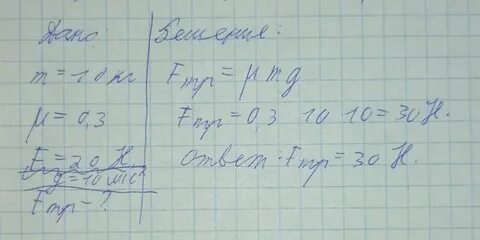 Дано:
m = 10 кг
μ = 0,3
F = 20 Н
g = 10 м/с²
Fтр - ?
Решение:
Fтр = μ m g
Fтр = 0,3 · 10 · 10 = 30 Н.
Ответ: Fтр = 30 Н.